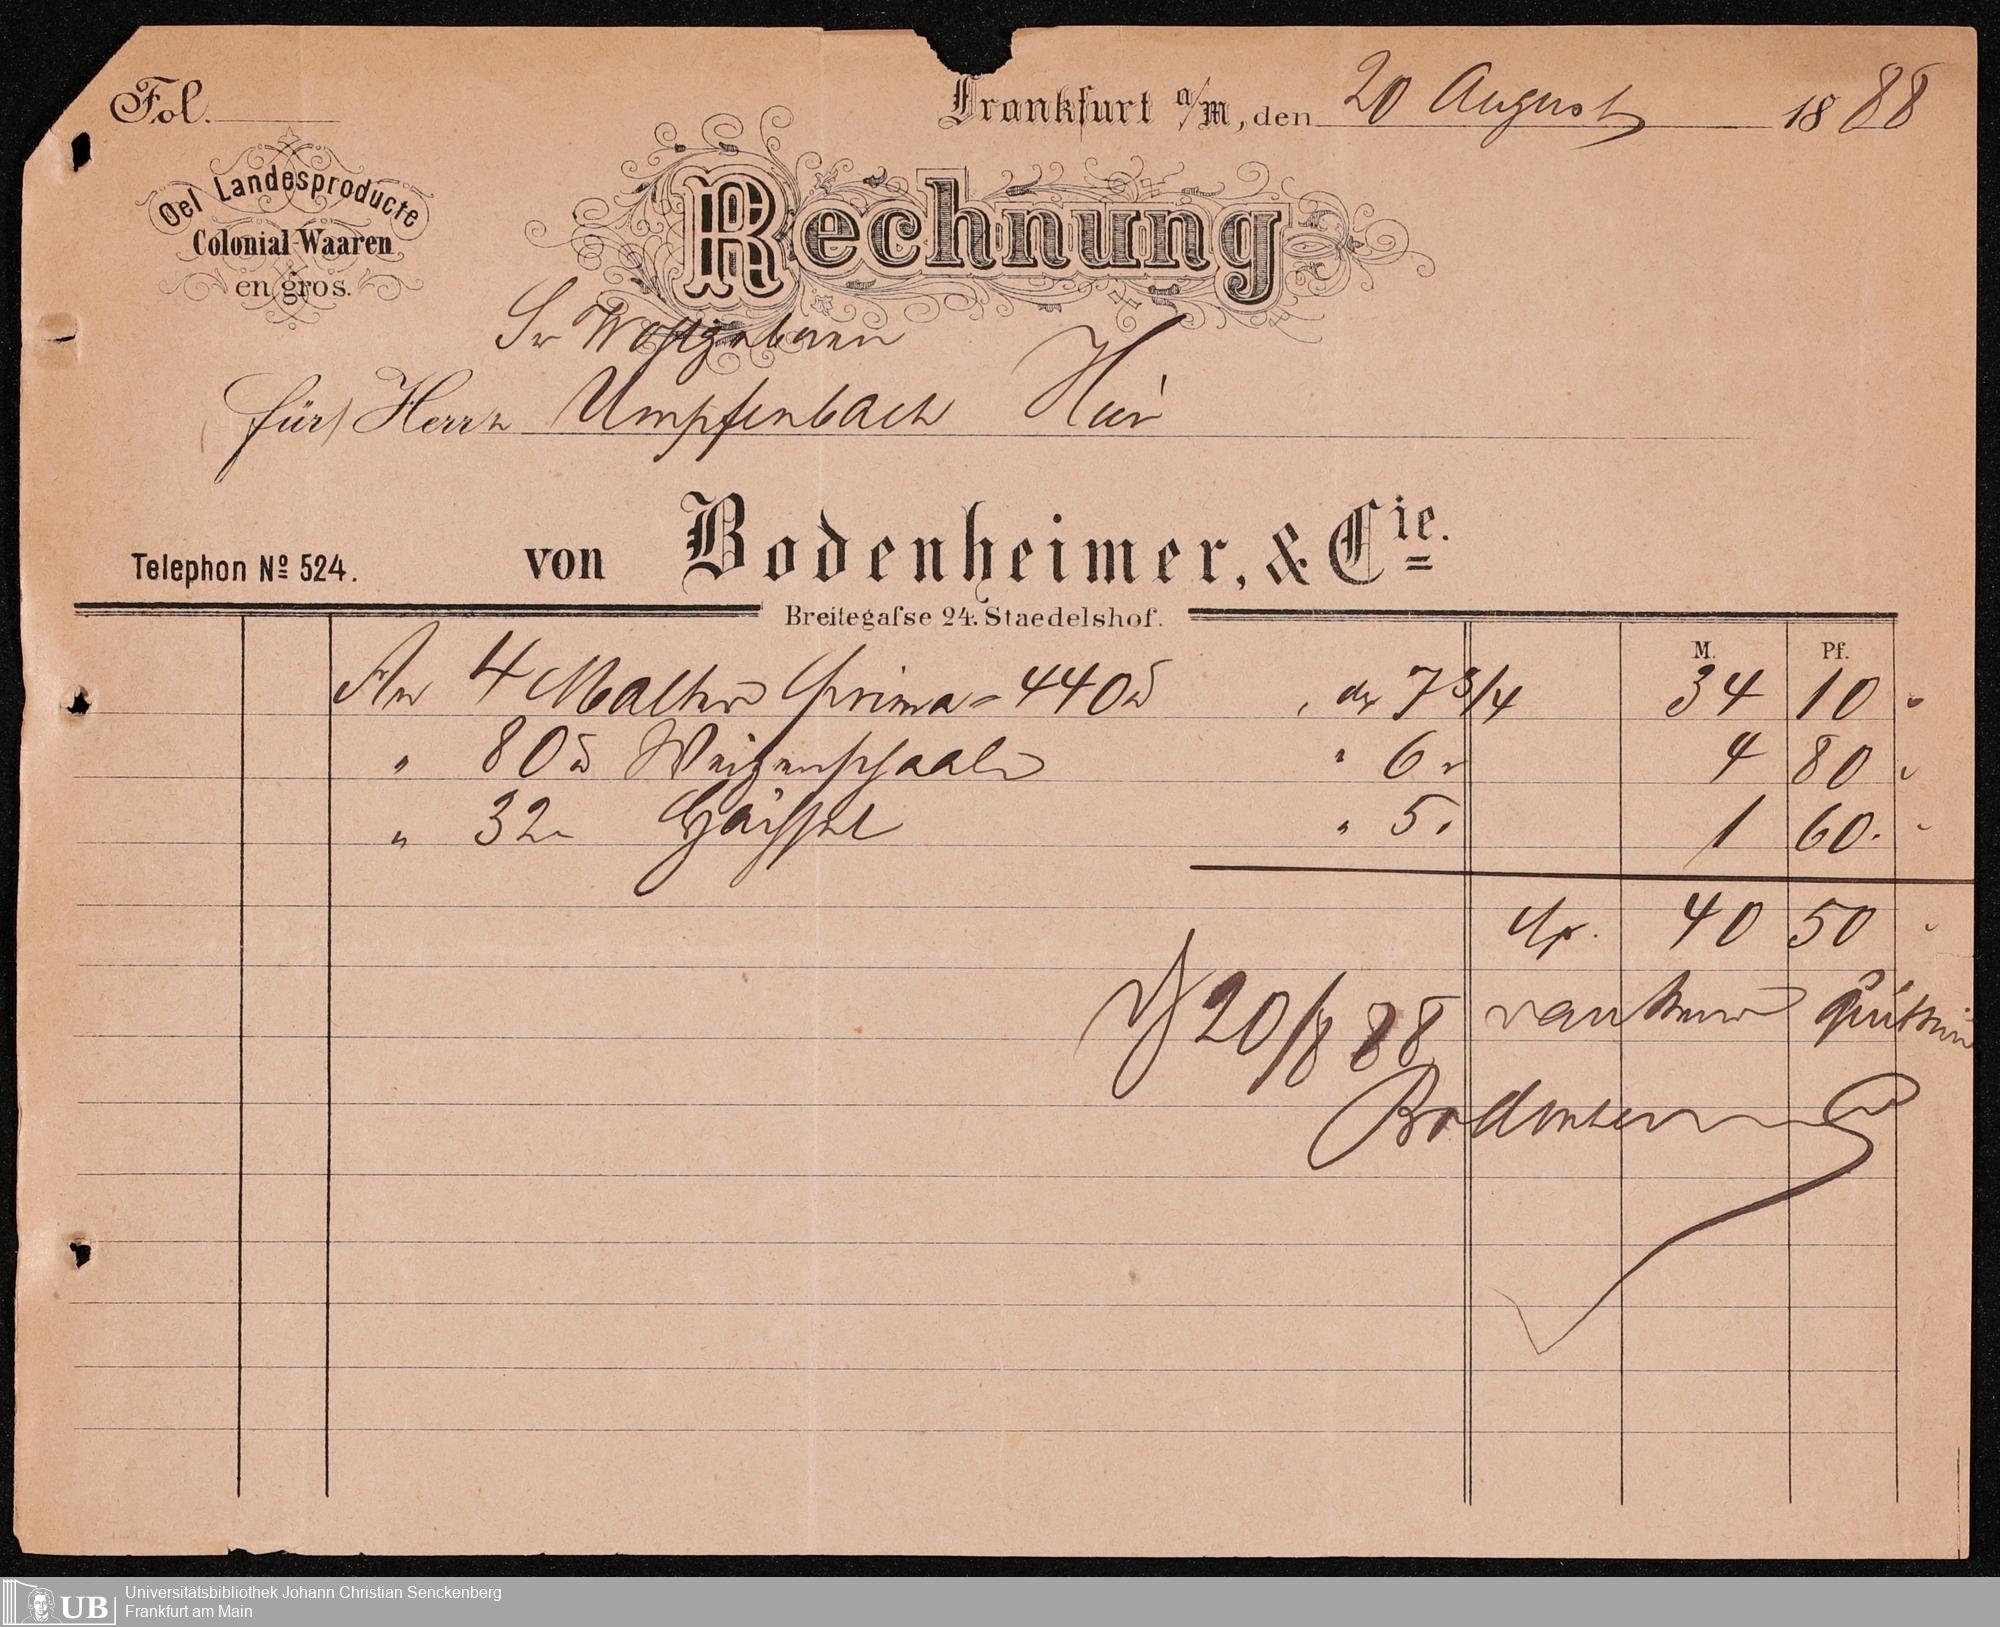 Fol.
Frankfurt a/M, den 20 August 1888
Oel Landesproducte
Colonial-Waaren
en gros.
Rechnung
Sr Wohlgeboren
für Herrn Umpfenbach Hier
Telephon No 524.
von Bodenheimer, & Cie.
Breitegaſse 24. Staedelshof.
M. Pf.
An 4 Malter Prima = 440 7 3/4 34 10
" 80 Weizenschaale " 6 4 80
" 32 Häcksel " 5. 1 60.
40 50
20/8 88 dankend quittirt
Bodenheimer
Universitätsbibliothek Johann Christian Senckenberg
Frankfurt am Main
UB